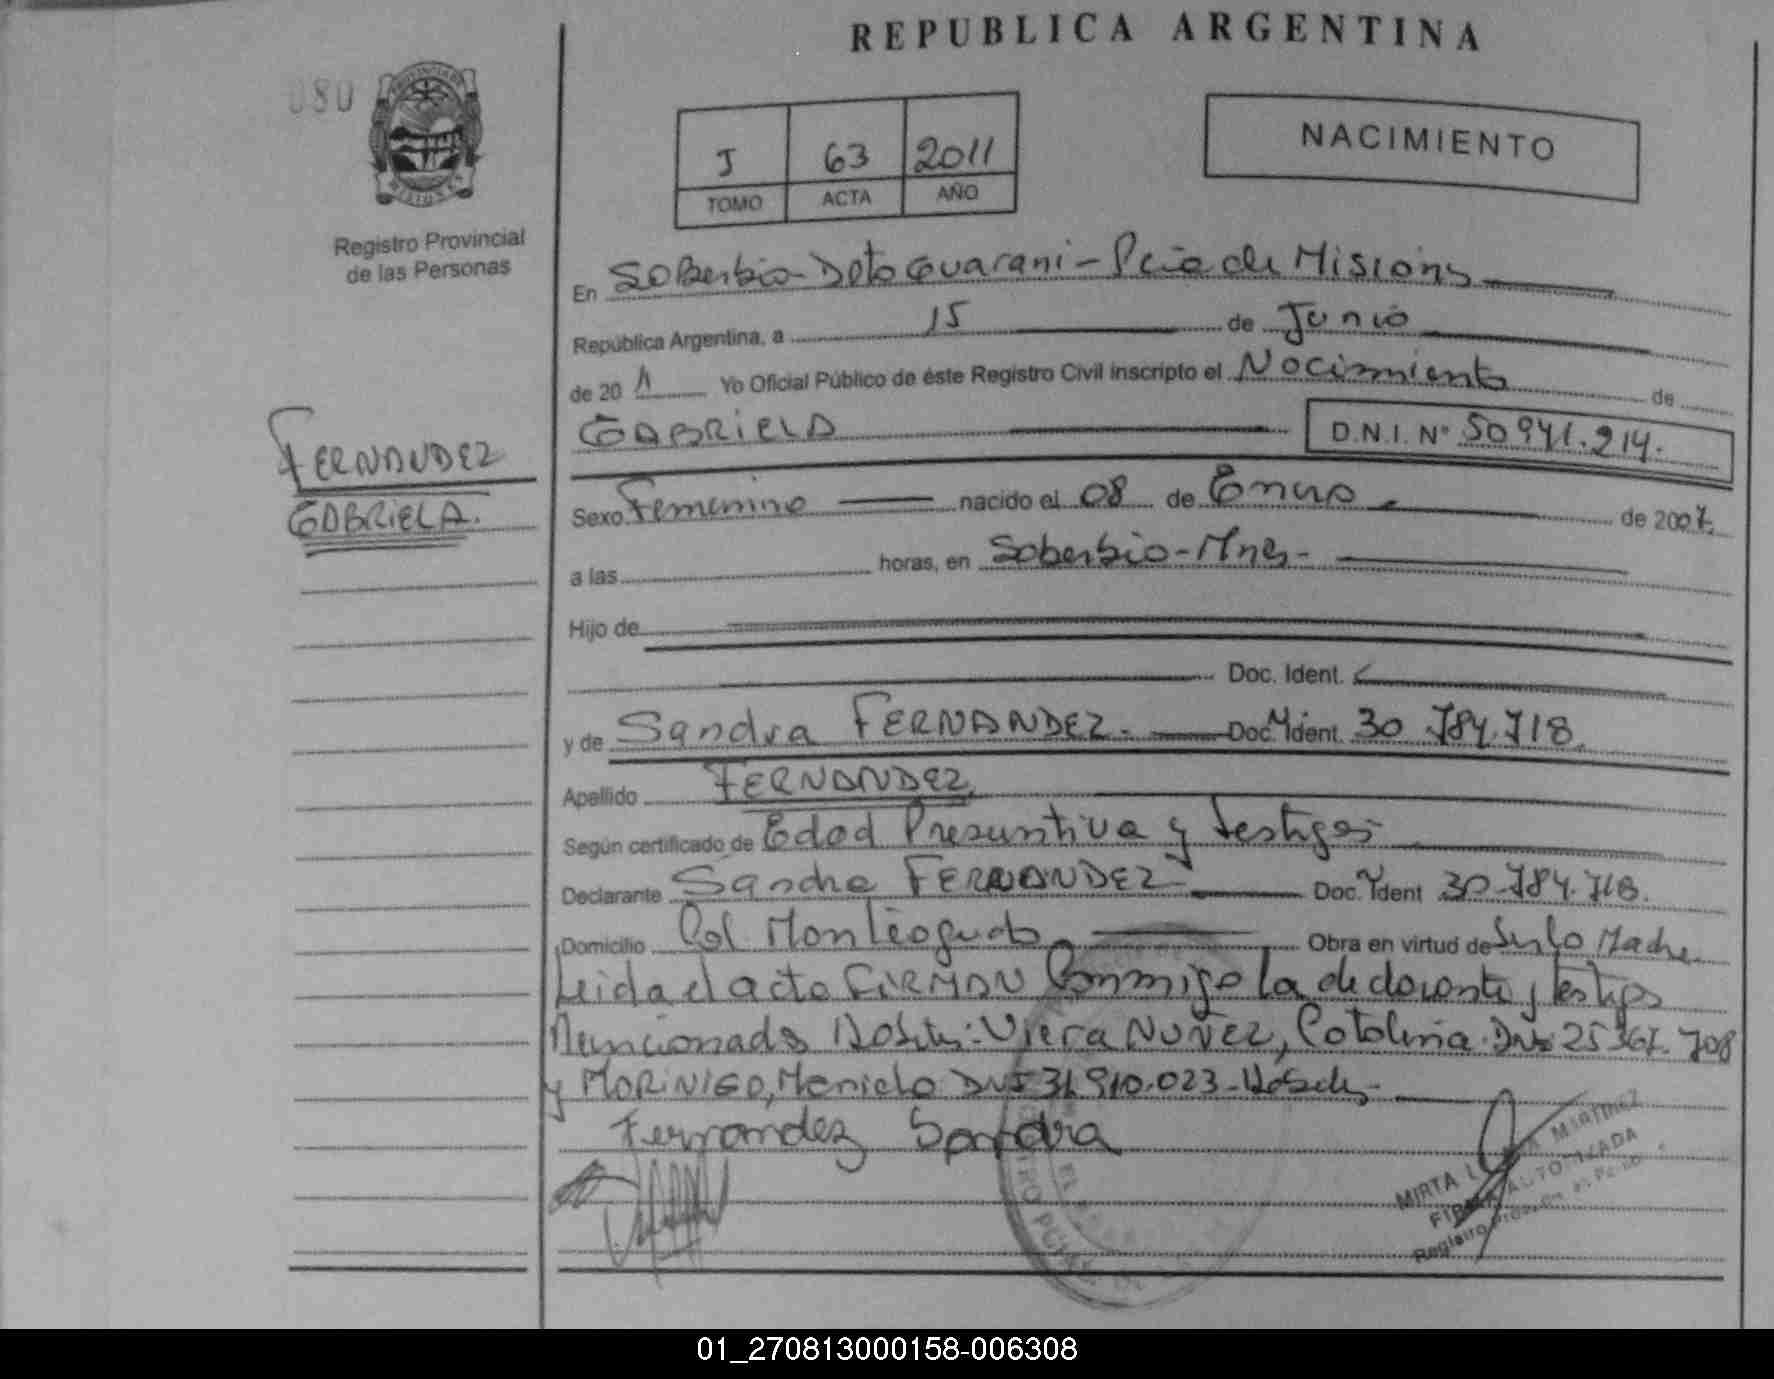 REPUBLICA ARGENTINA
080
J 63 2011
TOMO ACTA AÑO
NACIMIENTO
Registro Provincial
de las Personas
En Soberbio - Dpto Guarani - Pcia de Misiones
República Argentina, a 15 de Junio
de 20 11 Yo Oficial Público de éste Registro Civil inscripto el Nacimiento de
GABRIELA D.N.I. Nº 50.941.214.
FERNANDEZ
GABRIELA.
Sexo Femenino nacido el 08 de Enero de 2007
a las horas, en Soberbio - Mnes -
Hijo de
Doc. Ident.
y de Sandra FERNANDEZ. Doc. Ident. 30.784.718.
Apellido FERNANDEZ
Según certificado de Edad Presuntiva y testigos
Declarante Sandra FERNANDEZ Doc. Ident 30.784.718.
Domicilio Col Monteagudo Obra en virtud de Ser la Madre
Leida el acta FIRMAN Conmigo la declarante y testigos
Mencionados : Viera NUÑEZ, Catalina. DNI 25.367.708
y MORINIGO, DNI 31.910.023 -
Fernandez Sandra
MIRTA MARTINEZ
FIRMA AUTORIZADA
Registro
01_270813000158-006308